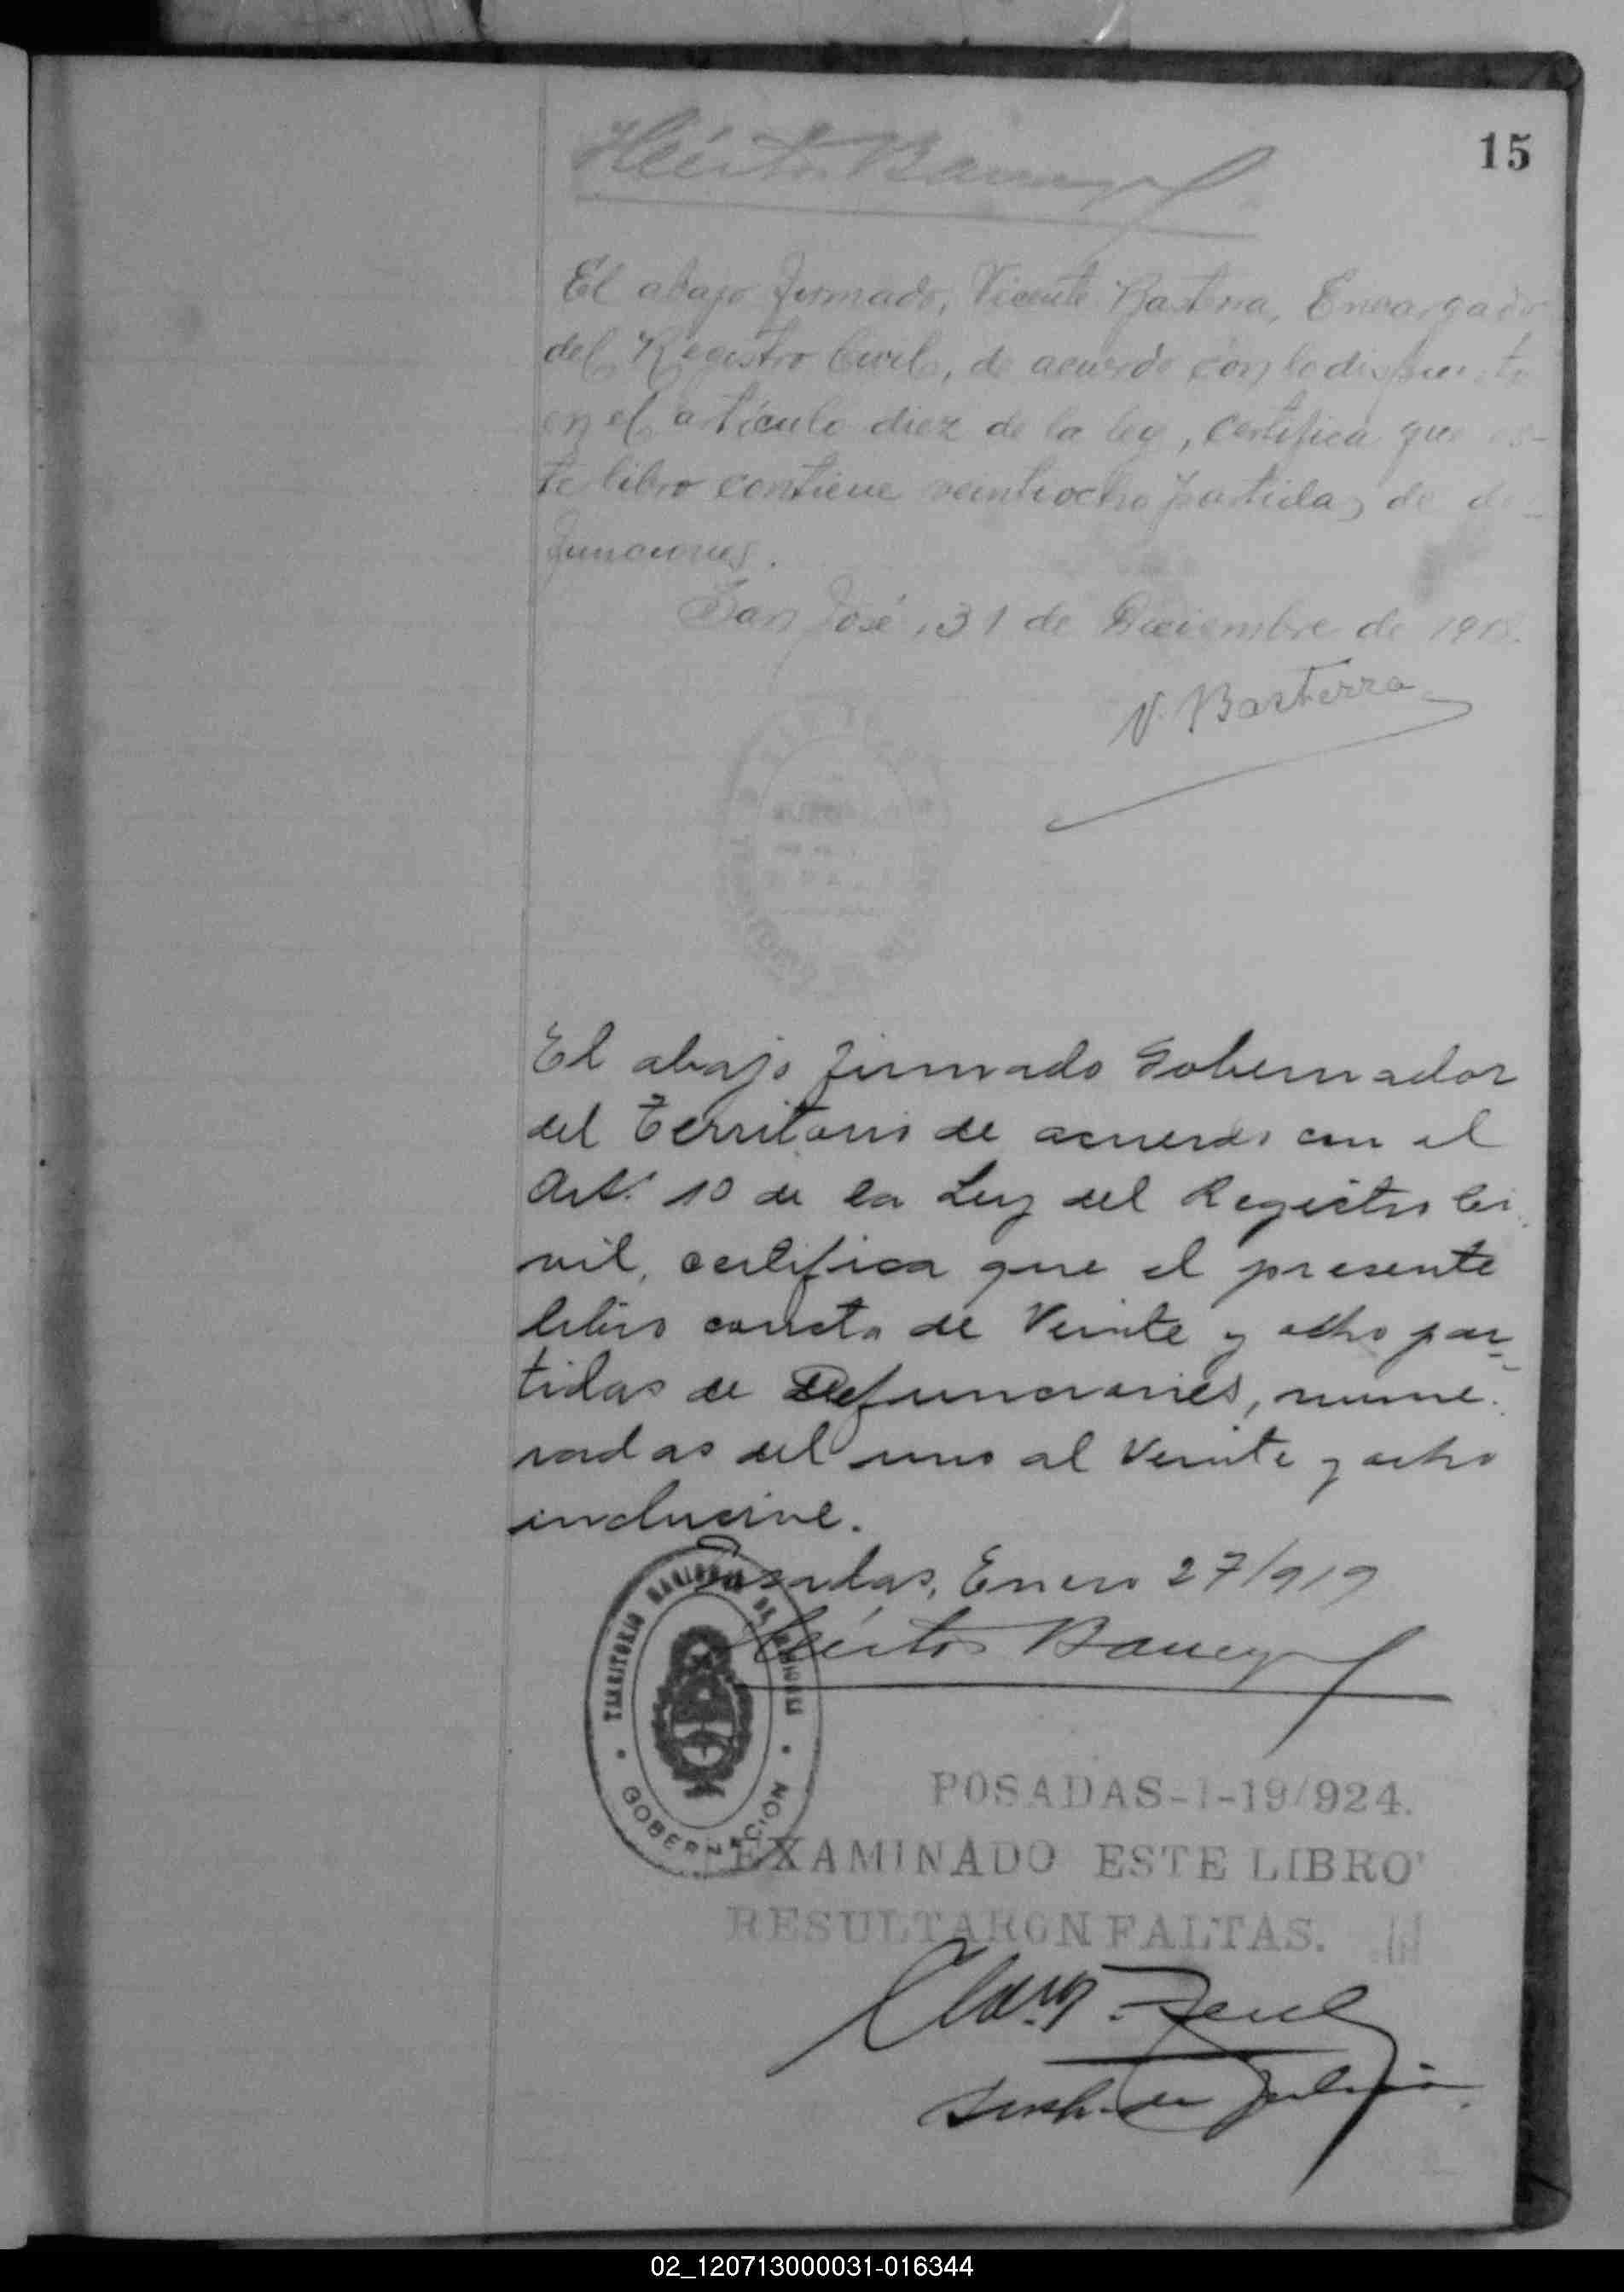 15
Héctor Barreyro
El abajo firmado, Vicente Basterra, Encargado
del Registro Civil, de acuerdo con lo dispuesto
en el artículo diez de la ley, certifica que es-
te libro contiene veintiocho partidas de de-
funciones.
San José, 31 de Diciembre de 1918.
V. Basterra
El abajo firmado Gobernador
del Territorio de acuerdo con el
Art. 10 de la Ley del Registro Ci
vil, certifica que el presente
libro consta de Veinte y ocho par-
tidas de Defunciones, nume-
radas del uno al Veinte y ocho
inclusive.
Posadas, Enero 27/919
Héctor Barreyro
TERRITORIO NACIONAL DE MISIONES
GOBERNACION
POSADAS-1-19/924.
EXAMINADO ESTE LIBRO
RESULTARON FALTAS.
02_120713000031-016344